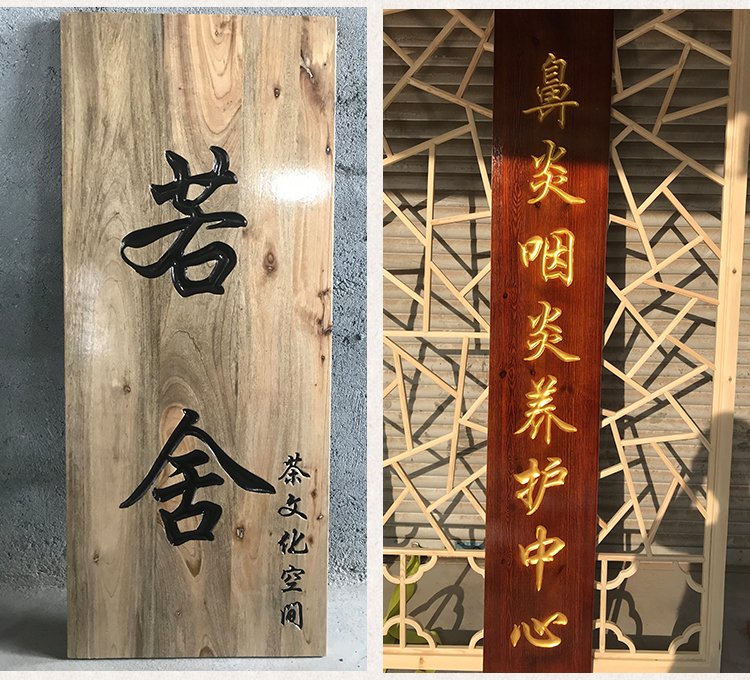 若舍
茶文化空间
鼻炎咽炎养护中心